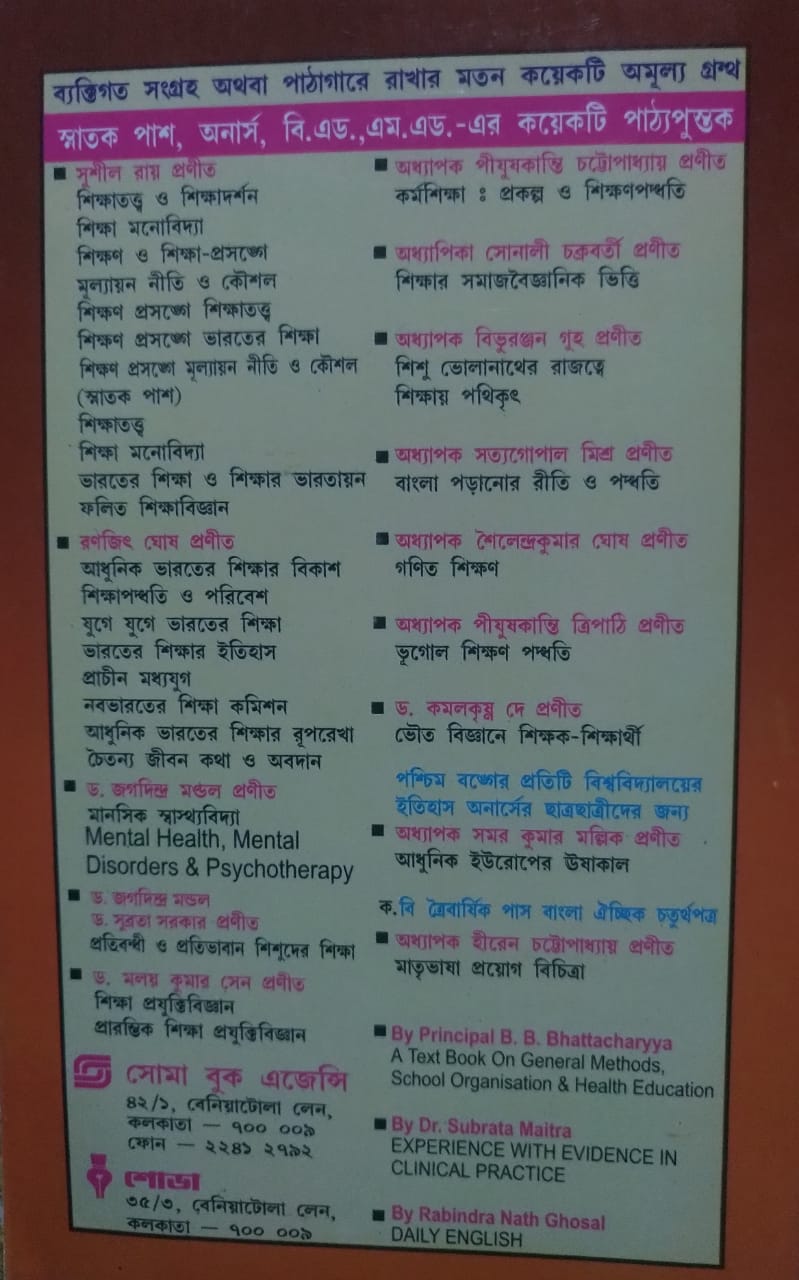 ব্যক্তিগত সংগ্রহ অথবা পাঠাগারে রাখার মতন কয়েকটি অমূল্য গ্রন্থ
স্নাতক পাশ, অনার্স, বি.এড.,এম.এড.-এর কয়েকটি পাঠ্যপুস্তক
■ সুশীল রায় প্রণীত
শিক্ষাতত্ত্ব ও শিক্ষাদর্শন
শিক্ষা মনোবিদ্যা
শিক্ষণ ও শিক্ষা-প্রসঙ্গে
মূল্যায়ন নীতি ও কৌশল
শিক্ষণ প্রসঙ্গে শিক্ষাতত্ত্ব
শিক্ষণ প্রসঙ্গে ভারতের শিক্ষা
শিক্ষণ প্রসঙ্গে মূল্যায়ন নীতি ও কৌশল
(স্নাতক পাশ)
শিক্ষাতত্ত্ব
শিক্ষা মনোবিদ্যা
ভারতের শিক্ষা ও শিক্ষার ভারতায়ন
ফলিত শিক্ষাবিজ্ঞান
■ রণজিৎ ঘোষ প্রণীত
আধুনিক ভারতের শিক্ষার বিকাশ
শিক্ষাপদ্ধতি ও পরিবেশ
যুগে যুগে ভারতের শিক্ষা
ভারতের শিক্ষার ইতিহাস
প্রাচীন মধ্যযুগ
নবভারতের শিক্ষা কমিশন
আধুনিক ভারতের শিক্ষার রূপরেখা
চৈতন্য জীবন কথা ও অবদান
■ ড. জগদিন্দ্র মন্ডল প্রণীত
মানসিক স্বাস্থ্যবিদ্যা
Mental Health, Mental
Disorders & Psychotherapy
■ ড. জগদিন্দ্র মন্ডল
ড. সুব্রতা সরকার প্রণীত
প্রতিবন্ধী ও প্রতিভাবান শিশুদের শিক্ষা
■ ড. মলয় কুমার সেন প্রণীত
শিক্ষা প্রযুক্তিবিজ্ঞান
প্রারম্ভিক শিক্ষা প্রযুক্তিবিজ্ঞান
সোমা বুক এজেন্সি
৪২/১, বেনিয়াটোলা লেন,
কলকাতা — ৭০০ ০০৯
ফোন — ২২৪১ ২৭৯২
শোভা
৩৫/৩, বেনিয়াটোলা লেন,
কলকাতা — ৭০০ ০০৯
■ অধ্যাপক পীযূষকান্তি চট্টোপাধ্যায় প্রণীত
কর্মশিক্ষা : প্রকল্প ও শিক্ষণপদ্ধতি
■ অধ্যাপিকা সোনালী চক্রবর্তী প্রণীত
শিক্ষার সমাজবৈজ্ঞানিক ভিত্তি
■ অধ্যাপক বিভুরঞ্জন গুহ প্রণীত
শিশু ভোলানাথের রাজত্বে
শিক্ষায় পথিকৃৎ
■ অধ্যাপক সত্যগোপাল মিশ্র প্রণীত
বাংলা পড়ানোর রীতি ও পদ্ধতি
■ অধ্যাপক শৈলেন্দ্রকুমার ঘোষ প্রণীত
গণিত শিক্ষণ
■ অধ্যাপক পীযূষকান্তি ত্রিপাঠি প্রণীত
ভূগোল শিক্ষণ পদ্ধতি
■ ড. কমলকৃষ্ণ দে প্রণীত
ভৌত বিজ্ঞানে শিক্ষক-শিক্ষার্থী
পশ্চিম বঙ্গের প্রতিটি বিশ্ববিদ্যালয়ের
ইতিহাস অনার্সের ছাত্রছাত্রীদের জন্য
■ অধ্যাপক সমর কুমার মল্লিক প্রণীত
আধুনিক ইউরোপের ঊষাকাল
ক.বি ত্রৈবার্ষিক পাস বাংলা ঐচ্ছিক চতুর্থপত্র
■ অধ্যাপক হীরেন চট্টোপাধ্যায় প্রণীত
মাতৃভাষা প্রয়োগ বিচিত্রা
■ By Principal B. B. Bhattacharyya
A Text Book On General Methods,
School Organisation & Health Education
■ By Dr. Subrata Maitra
EXPERIENCE WITH EVIDENCE IN
CLINICAL PRACTICE
■ By Rabindra Nath Ghosal
DAILY ENGLISH